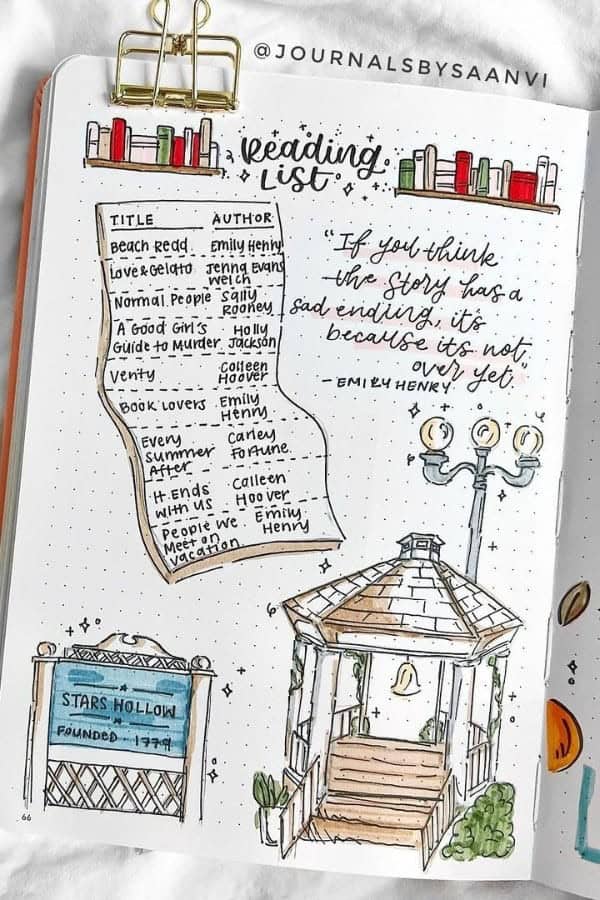 @JOURNALSBYSAANVI
Reading
List
TITLE AUTHOR
Beach Read Emily Henry
Love & Gelato Jenna Evans
Welch
Normal People Sally
Rooney
A Good Girl's Holly
Guide to Murder Jackson
Verity Colleen
Hoover
Book Lovers Emily
Henry
Every Carley
Summer Fortune
After
It Ends Calleen
With Us Hoover
People We Emily
Meet on Henry
Vacation
"If you think
the story has a
sad ending, it's
because its not
over yet."
- EMILY HENRY
STARS HOLLOW
FOUNDED 1779
66